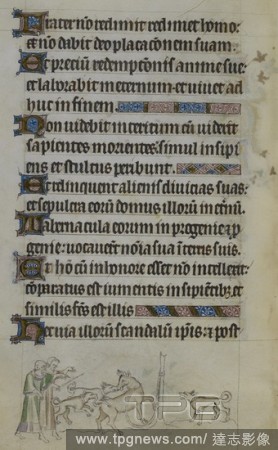 Frater nõ redimit redimet homo:
et nõ dabit deo placacõnem suam.
Et preciũ redemptõnis anime sue:
et laborabit in eternum et viuet ad
huc in finem.
Non videbit interitum cũ viderit
sapientes morientes: simul insipi
ens et stultus peribunt.
Et relinquent alienis diuicias suas:
et sepulcra eorũ domus illorũ in etnũ.
Tabernacula eorum in progenie et p
genie: uocauert noĩa sua ĩ terris suis.
Et hõ cũ in honore esset nõ intellexit:
cõparatus est iumentis insipiẽtibz et
similis fcs est illis
Hec via illorũ scandalũ ipĩs: et post
TPG
www.tpgnews.com/達志影像